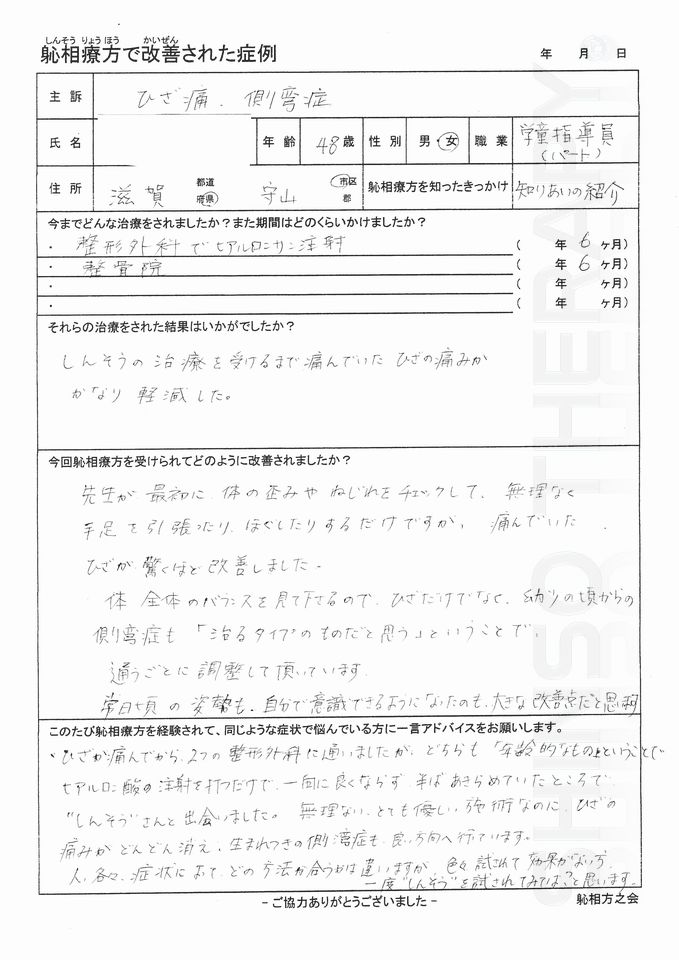 しんそう りょう ほう　かいぜん
躰相療方で改善された症例　年　月　日
主訴　ひざ痛、側弯症
氏名　年齢　48歳　性別　男・女　職業　学童指導員(パート)
住所　滋賀　都道府県　守山　市区郡　躰相療方を知ったきっかけ　知りあいの紹介
今までどんな治療をされましたか？また期間はどのくらいかけましたか？
・整形外科でヒアルロンサン注射　(　年 6 ヶ月)
・整骨院　(　年 6 ヶ月)
・　(　年　ヶ月)
・　(　年　ヶ月)
それらの治療をされた結果はいかがでしたか？
しんそうの治療を受けるまで痛んでいたひざの痛みが
かなり軽減した。
今回躰相療方を受けられてどのように改善されましたか？
先生が最初に、体の歪みやねじれをチェックして、無理なく
手足を引張ったり、ほぐしたりするだけですが、痛んでいた
ひざが驚くほど改善しました。
体全体のバランスを見て下さるので、ひざだけでなく、幼少の頃からの
側弯症も「治るタイプのものだと思う」ということで、
通うごとに調整して頂いています。
常日頃の姿勢も、自分で意識できるようになったのも、大きな改善点だと思います
このたび躰相療方を経験されて、同じような症状で悩んでいる方に一言アドバイスをお願いします。
ひざが痛んでから、2つの整形外科に通いましたが、どちらも「年齢的なもの」ということで
ヒアルロン酸の注射を打つだけで、一向に良くならず、半ばあきらめていたところで
"しんそう"さんと出会いました。無理ない、とても優しい施術なのに、ひざの
痛みがどんどん消え、生まれつきの側湾症も、良い方向へ行っています。
人各々、症状によって、どの方法が合うかは違いますが、色々試されて効果がない方、
一度"しんそう"を試されてみては？と思います。
- ご協力ありがとうございました -　躰相方之会
SHINSO THERAPY